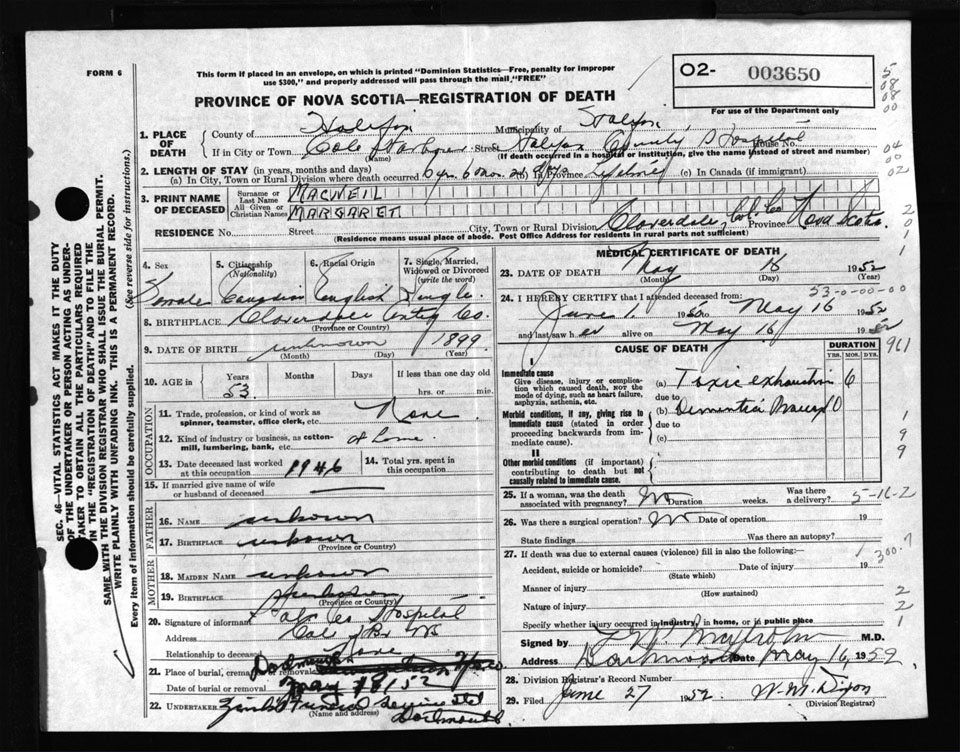 FORM 6
This form if placed in an envelope, on which is printed "Dominion Statistics—Free, penalty for improper
use $300," and properly addressed will pass through the mail "FREE"
O2- 003650
For use of the Department only
PROVINCE OF NOVA SCOTIA—REGISTRATION OF DEATH
1. PLACE OF DEATH
County of Halifax Municipality of Halifax
If in City or Town Cole Harbour Street Halifax County Hospital House No.
(Name) (If death occurred in a hospital or institution, give the name instead of street and number)
2. LENGTH OF STAY (in years, months and days)
(a) In City, Town or Rural Division where death occurred 6 yrs. 6 mos. (b) In Province Lifetime (c) In Canada (if immigrant)
3. PRINT NAME OF DECEASED
Surname or Last Name MACNEIL
All Given or Christian Names MARGARET
RESIDENCE No. Street City, Town or Rural Division Cloverdale, Col. Co. Province Nova Scotia
(Residence means usual place of abode. Post Office Address for residents in rural parts not sufficient)
4. Sex Female
5. Citizenship (Nationality) Canadian
6. Racial Origin English
7. Single, Married, Widowed or Divorced (write the word) Single
8. BIRTHPLACE Cloverdale Co.
(Province or Country)
9. DATE OF BIRTH unknown 1899
(Month) (Day) (Year)
10. AGE in Years Months Days If less than one day old
53 hrs. or min.
OCCUPATION
11. Trade, profession, or kind of work as spinner, teamster, office clerk, etc. None
12. Kind of industry or business, as cotton-mill, lumbering, bank, etc. at home
13. Date deceased last worked at this occupation 1946
14. Total yrs. spent in this occupation
15. If married give name of wife or husband of deceased —
FATHER
16. NAME unknown
17. BIRTHPLACE unknown
(Province or Country)
MOTHER
18. MAIDEN NAME unknown
19. BIRTHPLACE unknown
(Province or Country)
20. Signature of informant Hal Co Hospital
Address Cole Hbr NS
Relationship to deceased None
21. Place of burial, cremation or removal Dartmouth
Date of burial or removal May 18/52
22. UNDERTAKER Funeral Service Ltd
(Name and address) Dartmouth
MEDICAL CERTIFICATE OF DEATH
23. DATE OF DEATH May 16 1952
(Month) (Day) (Year)
53-0-00-00
24. I HEREBY CERTIFY that I attended deceased from:
June 1, 1950 to May 16 1952
and last saw her alive on May 16 1952
CAUSE OF DEATH
DURATION
YRS. MOS. DYS.
Immediate cause
Give disease, injury or complication which caused death, not the mode of dying, such as heart failure, asphyxia, asthenia, etc.
(a) Toxic exhaustion 6
due to
Morbid conditions, if any, giving rise to immediate cause (stated in order proceeding backwards from immediate cause).
(b) Dementia Praecox
due to
(c)
II
Other morbid conditions (if important) contributing to death but not causally related to immediate cause.
25. If a woman, was the death associated with pregnancy? No Duration weeks. Was there a delivery?
5-16-2
26. Was there a surgical operation? No Date of operation 19
State findings Was there an autopsy?
27. If death was due to external causes (violence) fill in also the following:—
Accident, suicide or homicide? Date of injury 19
(State which)
300.7
Manner of injury
(How sustained)
Nature of injury
Specify whether injury occurred in industry, in home, or in public place
Signed by M.D.
Address Dartmouth Date May 16, 1952
28. Division Registrar's Record Number
29. Filed June 27 1952 W. M. Dixon
(Division Registrar)
SEC. 46—VITAL STATISTICS ACT MAKES IT THE DUTY
OF THE UNDERTAKER OR PERSON ACTING AS UNDER-
TAKER TO OBTAIN ALL THE PARTICULARS REQUIRED
IN THE "REGISTRATION OF DEATH" AND TO FILE THE
SAME WITH THE DIVISION REGISTRAR WHO SHALL ISSUE THE BURIAL PERMIT.
WRITE PLAINLY WITH UNFADING INK. THIS IS A PERMANENT RECORD.
Every item of information should be carefully supplied. (See reverse side for instructions.)